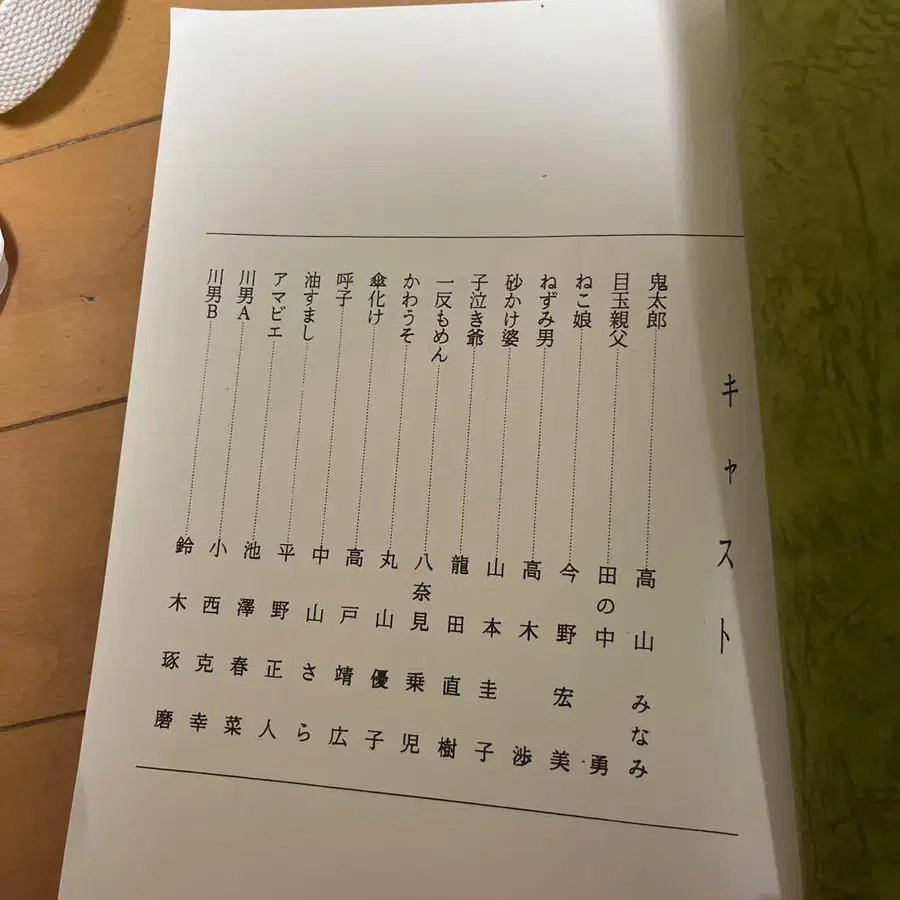 キャスト
鬼太郎……高山みなみ
目玉親父……田の中勇
ねこ娘……今野宏美
ねずみ男……高木渉
砂かけ婆……山本圭子
子泣き爺……龍田直樹
一反もめん……八奈見乗児
かわうそ……丸山優子
傘化け……高戸靖広
呼子……中山さら
油すまし……平野正人
アマビエ……池澤春菜
川男A……小西克幸
川男B……鈴木琢磨